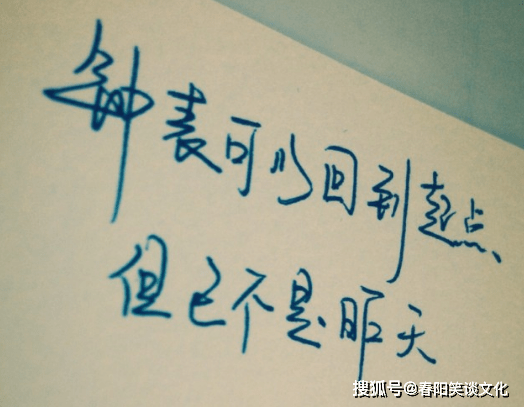 钟表可以回到起点、
但已不是昨天
搜狐号@春阳笑谈文化